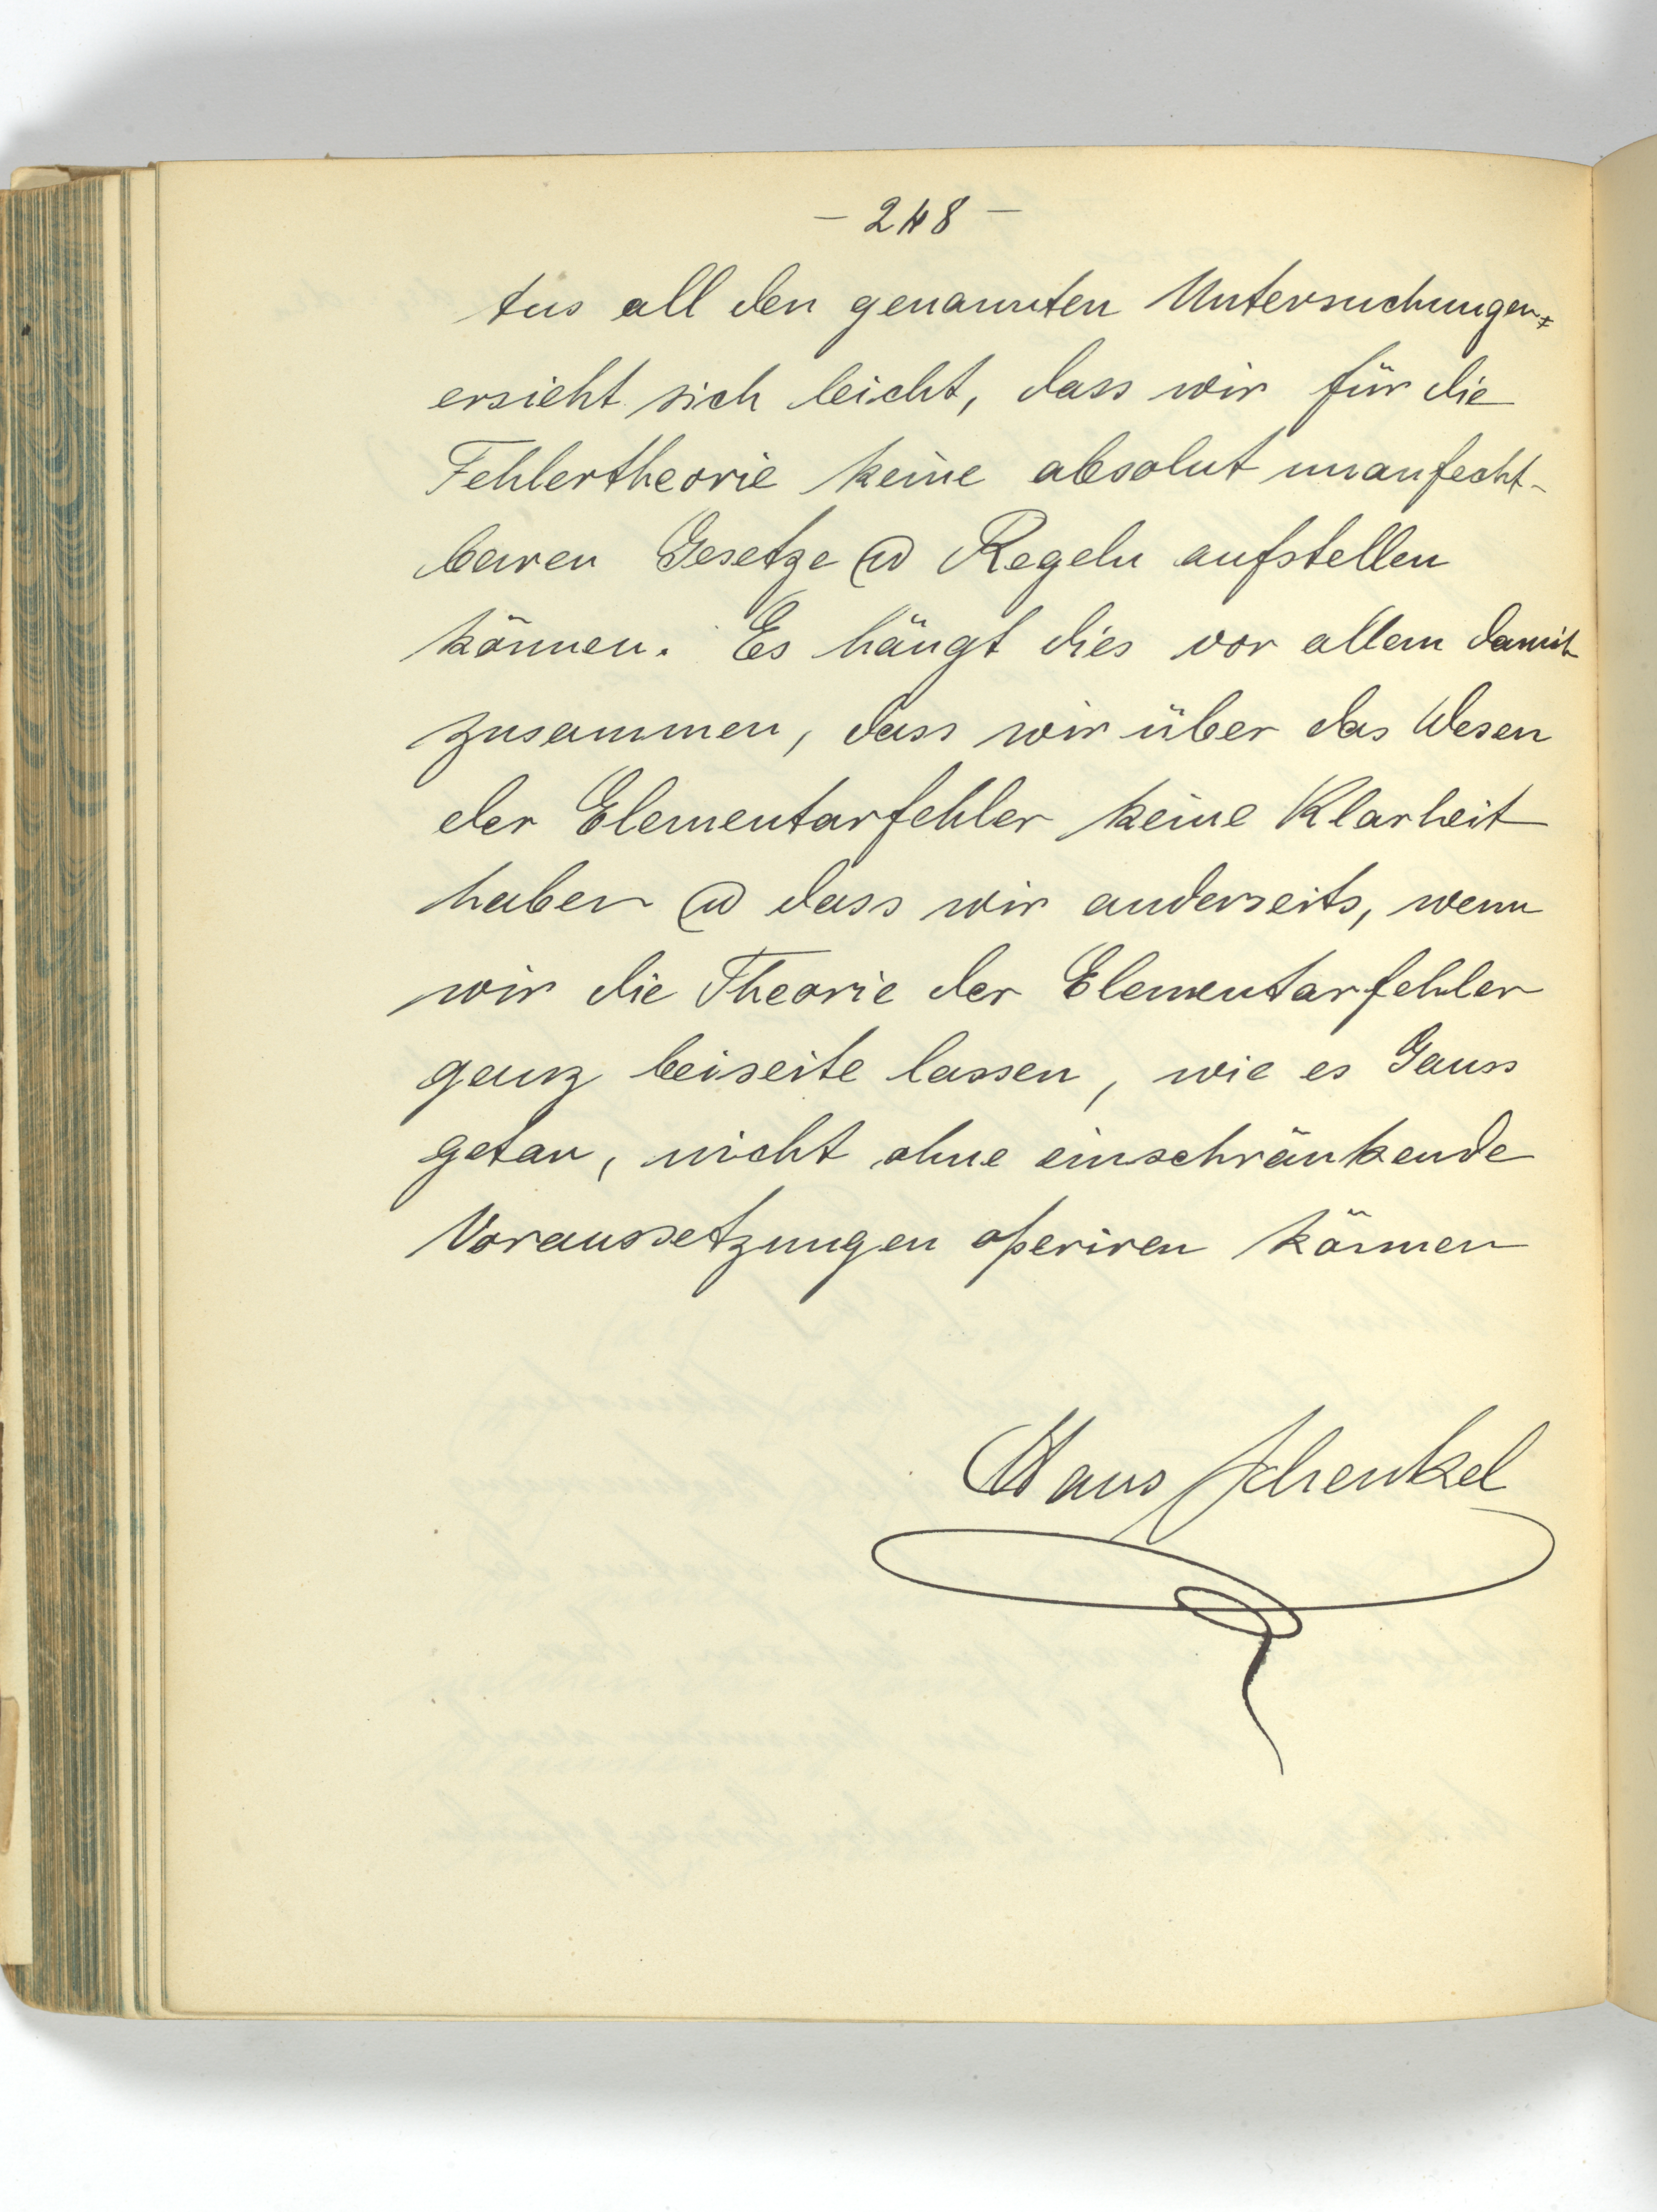 - 248 -
Aus all den genannten Untersuchungen
ersieht sich leicht, dass wir für die
Fehlertheorie keine absolut unanfecht-
baren Gesetze @ Regeln aufstellen
können. Es hängt dies vor allem damit
zusammen, dass wir über das Wesen
der Elementarfehler keine Klarheit
haben @ dass wir anderseits, wenn
wir die Theorie der Elementarfehler
ganz beiseite lassen, wie es Gauss
getan, nicht ohne einschränkende
Voraussetzungen operiren können
Hans Schenkel